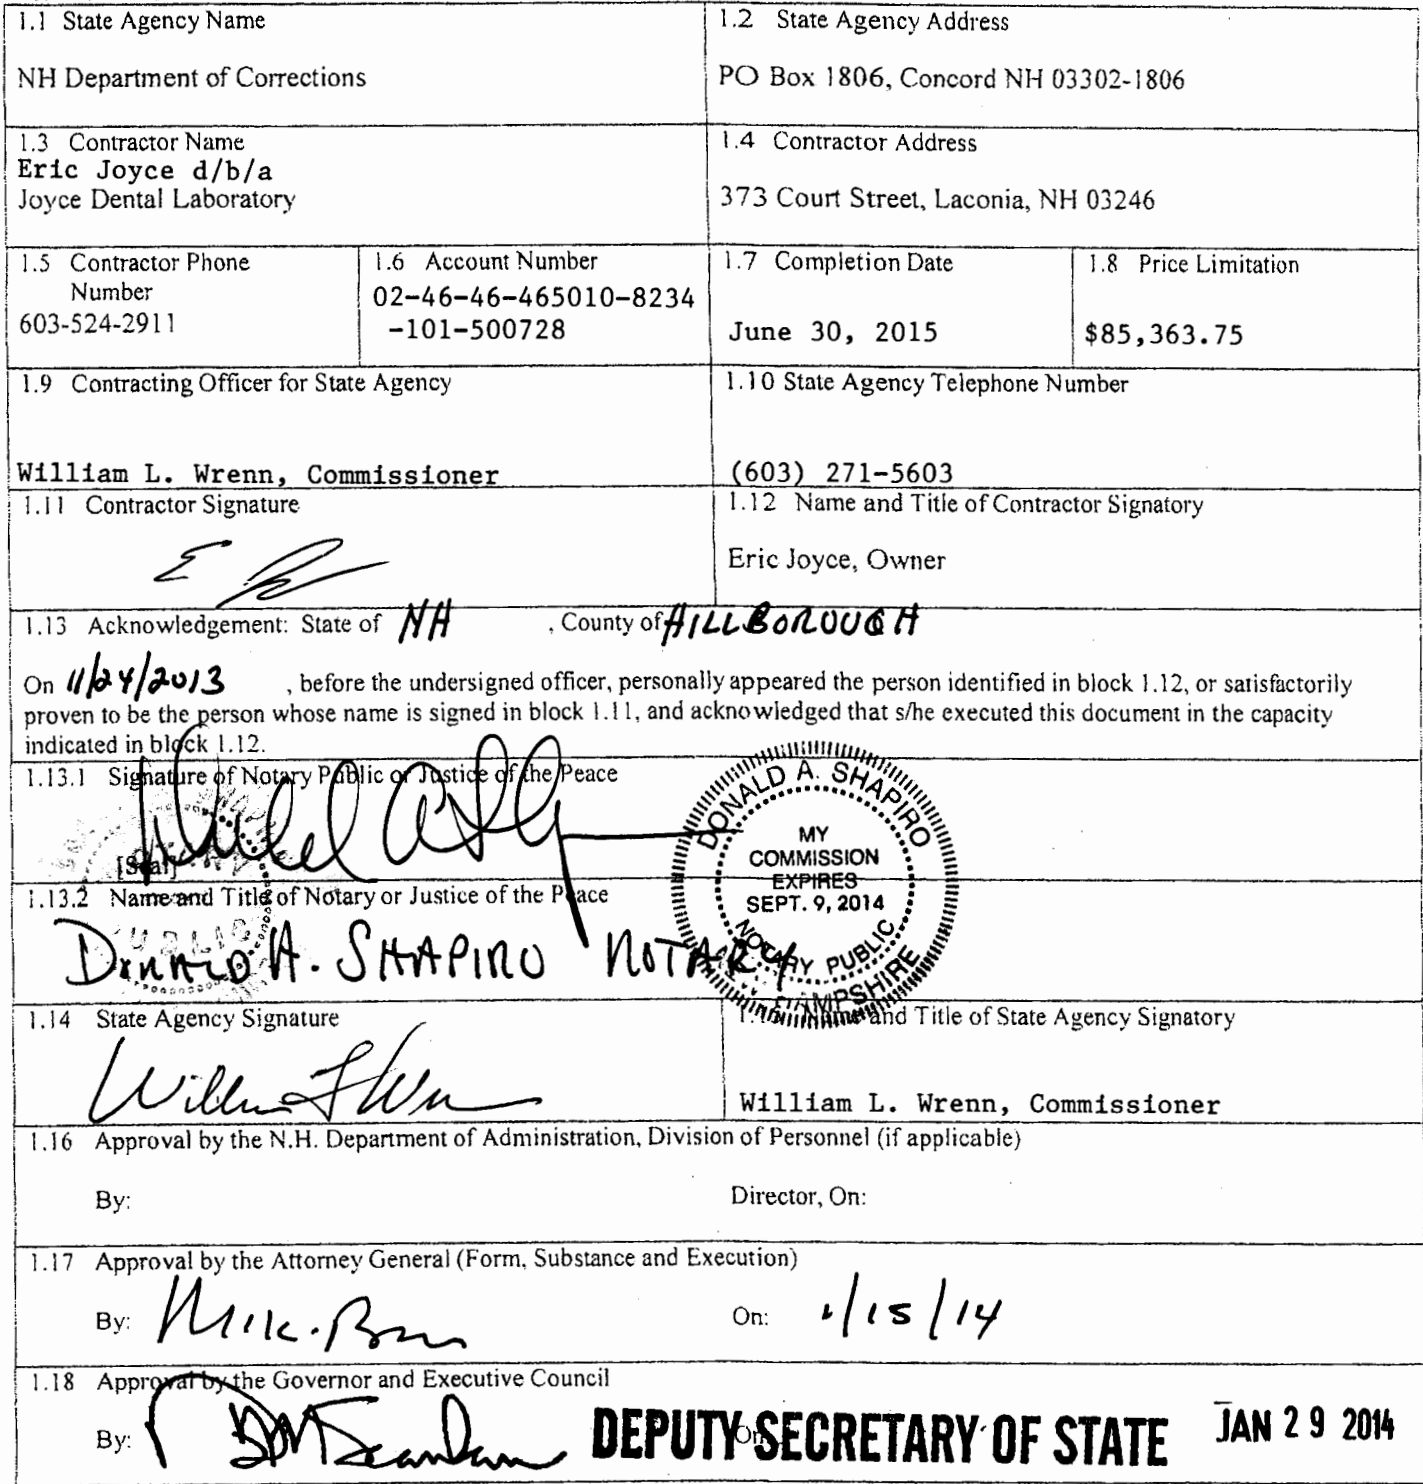 1.1 State Agency Name
NH Department of Corrections
1.2 State Agency Address
PO Box 1806, Concord NH 03302-1806
1.3 Contractor Name
Eric Joyce d/b/a
Joyce Dental Laboratory
1.4 Contractor Address
373 Court Street, Laconia, NH 03246
1.5 Contractor Phone
Number
603-524-2911
1.6 Account Number
02-46-46-465010-8234
-101-500728
1.7 Completion Date
June 30, 2015
1.8 Price Limitation
$85,363.75
1.9 Contracting Officer for State Agency
William L. Wrenn, Commissioner
1.10 State Agency Telephone Number
(603) 271-5603
1.11 Contractor Signature
1.12 Name and Title of Contractor Signatory
Eric Joyce, Owner
1.13 Acknowledgement: State of NH , County of HILLBOROUGH
On 11/24/2013 , before the undersigned officer, personally appeared the person identified in block 1.12, or satisfactorily
proven to be the person whose name is signed in block 1.11, and acknowledged that s/he executed this document in the capacity
indicated in block 1.12.
1.13.1 Signature of Notary Public or Justice of the Peace
[Seal]
DONALD A. SHAPIRO
MY
COMMISSION
EXPIRES
SEPT. 9, 2014
NOTARY PUBLIC
HAMPSHIRE
1.13.2 Name and Title of Notary or Justice of the Peace
DONALD A. SHAPIRO NOTARY
1.14 State Agency Signature
Name and Title of State Agency Signatory
William L. Wrenn, Commissioner
1.16 Approval by the N.H. Department of Administration, Division of Personnel (if applicable)
By:
Director, On:
1.17 Approval by the Attorney General (Form, Substance and Execution)
By:
On: 1/15/14
1.18 Approval by the Governor and Executive Council
By:
DEPUTY SECRETARY OF STATE
On:
JAN 29 2014